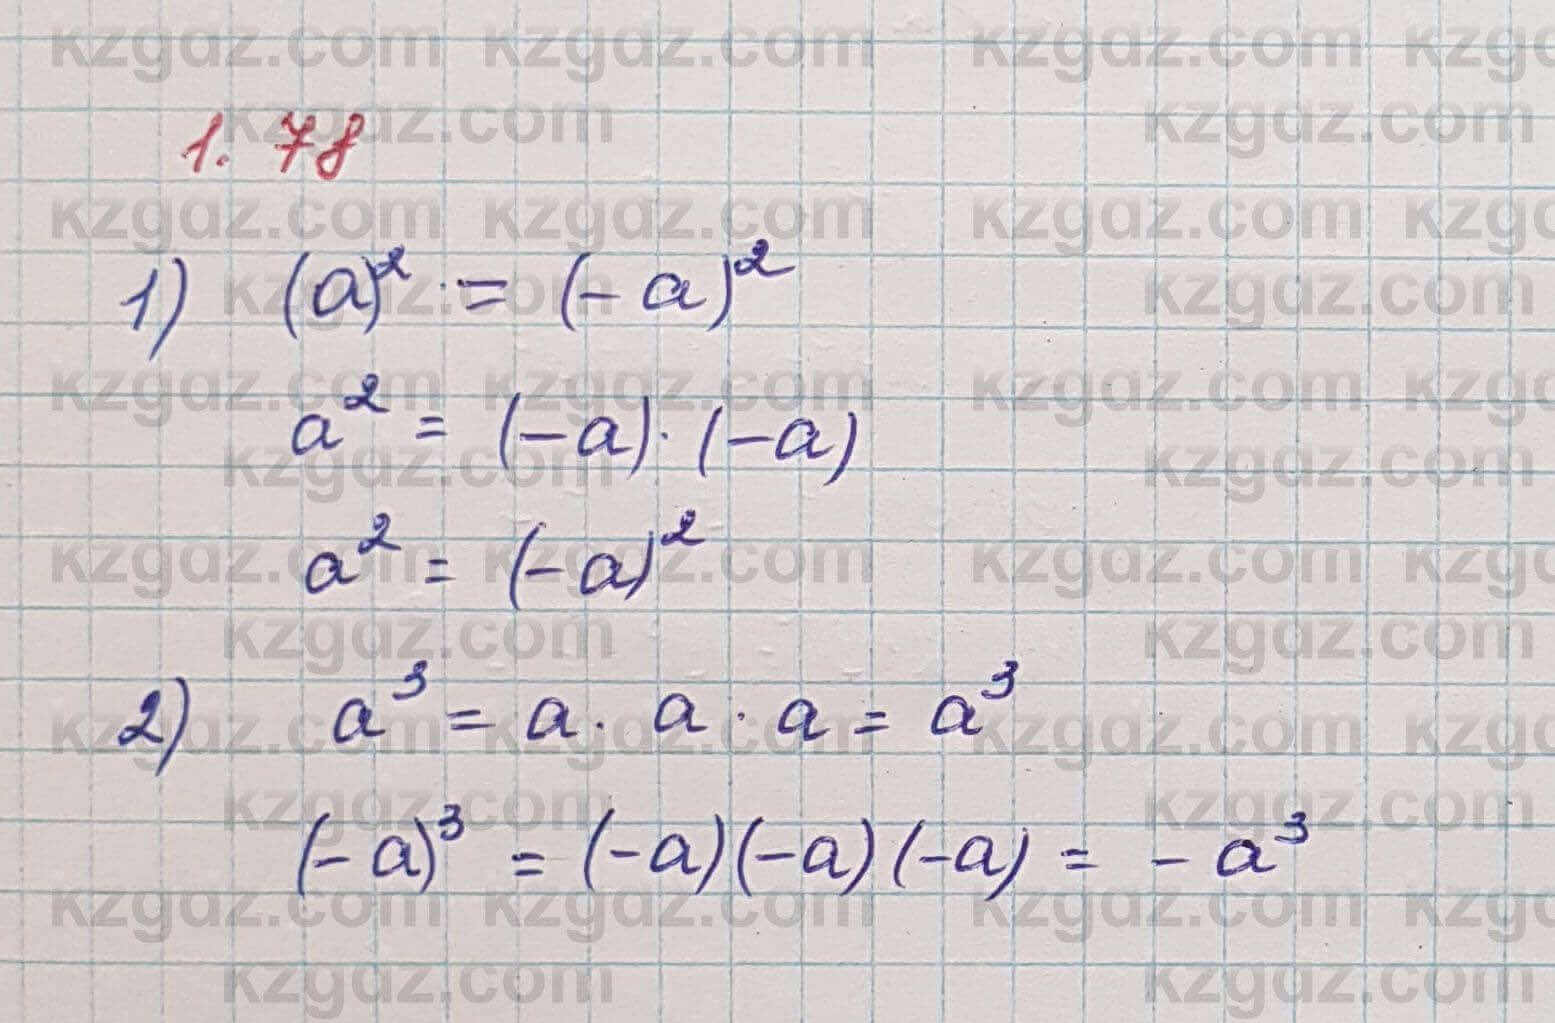 1. 78
1) (a)² = (-a)²
a² = (-a)·(-a)
a² = (-a)²
2) a³ = a · a · a = a³
(-a)³ = (-a)(-a)(-a) = -a³
kzgdz.com